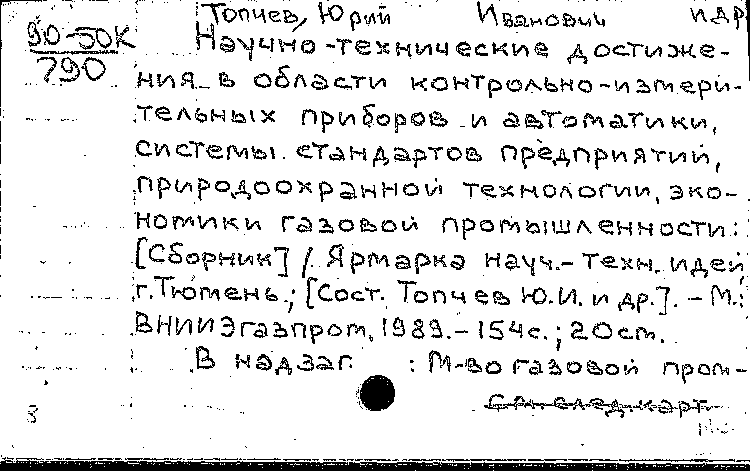 Топчев, Юрий Иванович и др
90-50К
790
Научно-технические достиже-
ния в области контрольно-измери-
тельных приборов и автоматики,
системы стандартов предприятий,
природоохранной технологии, эко-
номики газовой промышленности:
[Сборник] / Ярмарка науч.-техн. идей,
г. Тюмень.; [Сост. Топчев Ю.И. и др.]. - М.:
ВНИИЭгазпром, 1989. - 154с.; 20см.
В надзаг. : М-во газовой пром-
См. след. карт.